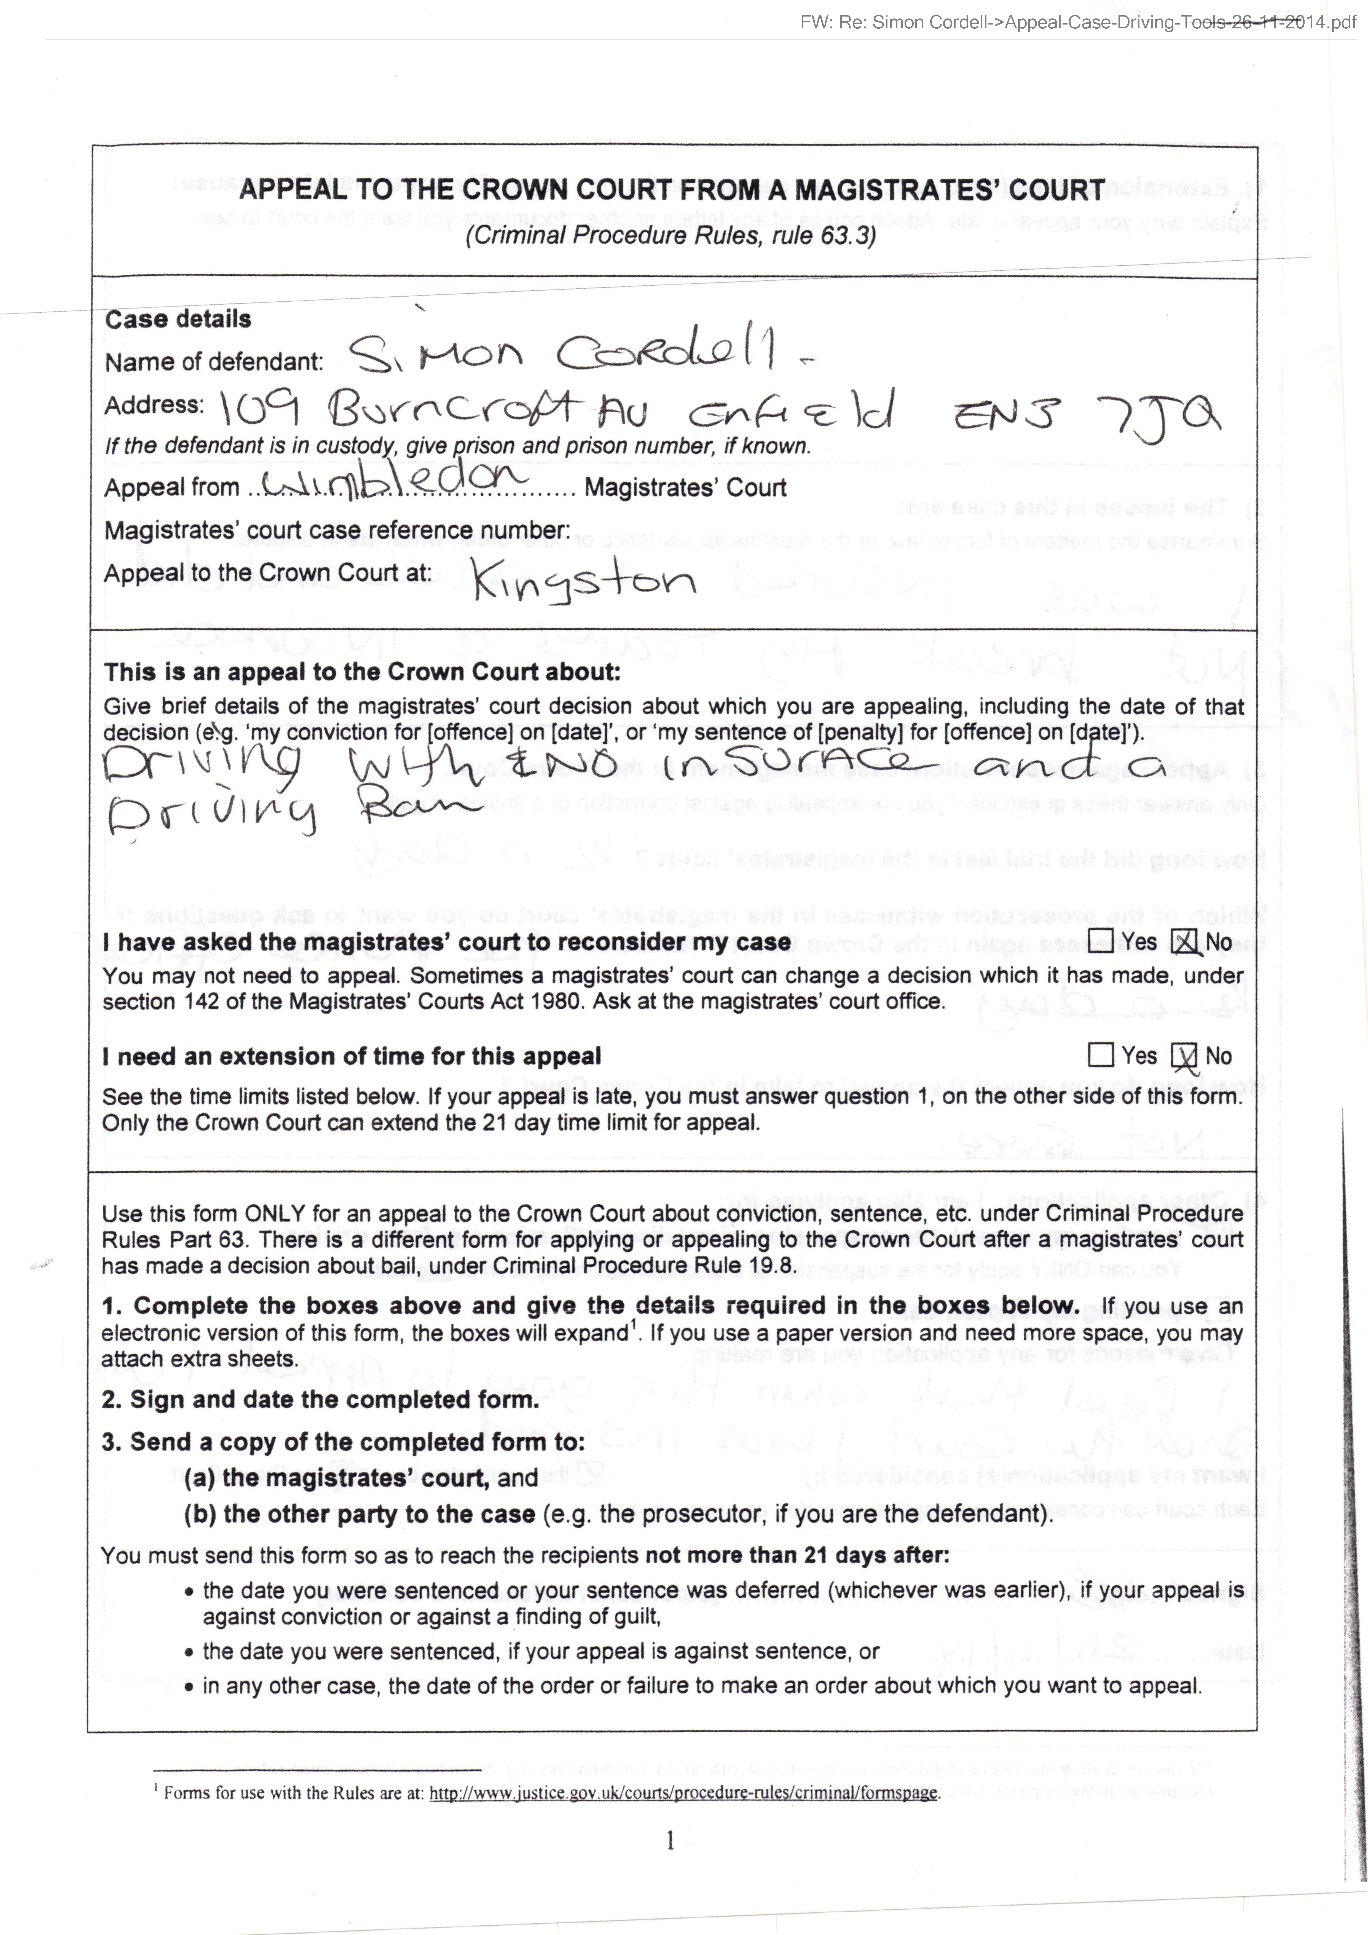 FW: Re: Simon Cordell->Appeal-Case-Driving-Tools-26-11-2014.pdf
APPEAL TO THE CROWN COURT FROM A MAGISTRATES' COURT
(Criminal Procedure Rules, rule 63.3)
Case details
Name of defendant: Simon Cordell
Address: 109 Burncroft AV Enfield EN3 7JQ
If the defendant is in custody, give prison and prison number, if known.
Appeal from ..Wimbledon.......... Magistrates' Court
Magistrates' court case reference number:
Appeal to the Crown Court at: Kingston
This is an appeal to the Crown Court about:
Give brief details of the magistrates' court decision about which you are appealing, including the date of that
decision (e.g. 'my conviction for [offence] on [date]', or 'my sentence of [penalty] for [offence] on [date]').
Driving With NO insurace and a
Driving Ban
I have asked the magistrates' court to reconsider my case Yes No
You may not need to appeal. Sometimes a magistrates' court can change a decision which it has made, under
section 142 of the Magistrates' Courts Act 1980. Ask at the magistrates' court office.
I need an extension of time for this appeal Yes No
See the time limits listed below. If your appeal is late, you must answer question 1, on the other side of this form.
Only the Crown Court can extend the 21 day time limit for appeal.
Use this form ONLY for an appeal to the Crown Court about conviction, sentence, etc. under Criminal Procedure
Rules Part 63. There is a different form for applying or appealing to the Crown Court after a magistrates' court
has made a decision about bail, under Criminal Procedure Rule 19.8.
1. Complete the boxes above and give the details required in the boxes below. If you use an
electronic version of this form, the boxes will expand¹. If you use a paper version and need more space, you may
attach extra sheets.
2. Sign and date the completed form.
3. Send a copy of the completed form to:
(a) the magistrates' court, and
(b) the other party to the case (e.g. the prosecutor, if you are the defendant).
You must send this form so as to reach the recipients not more than 21 days after:
• the date you were sentenced or your sentence was deferred (whichever was earlier), if your appeal is
against conviction or against a finding of guilt,
• the date you were sentenced, if your appeal is against sentence, or
• in any other case, the date of the order or failure to make an order about which you want to appeal.
¹ Forms for use with the Rules are at: http://www.justice.gov.uk/courts/procedure-rules/criminal/formspage.
1